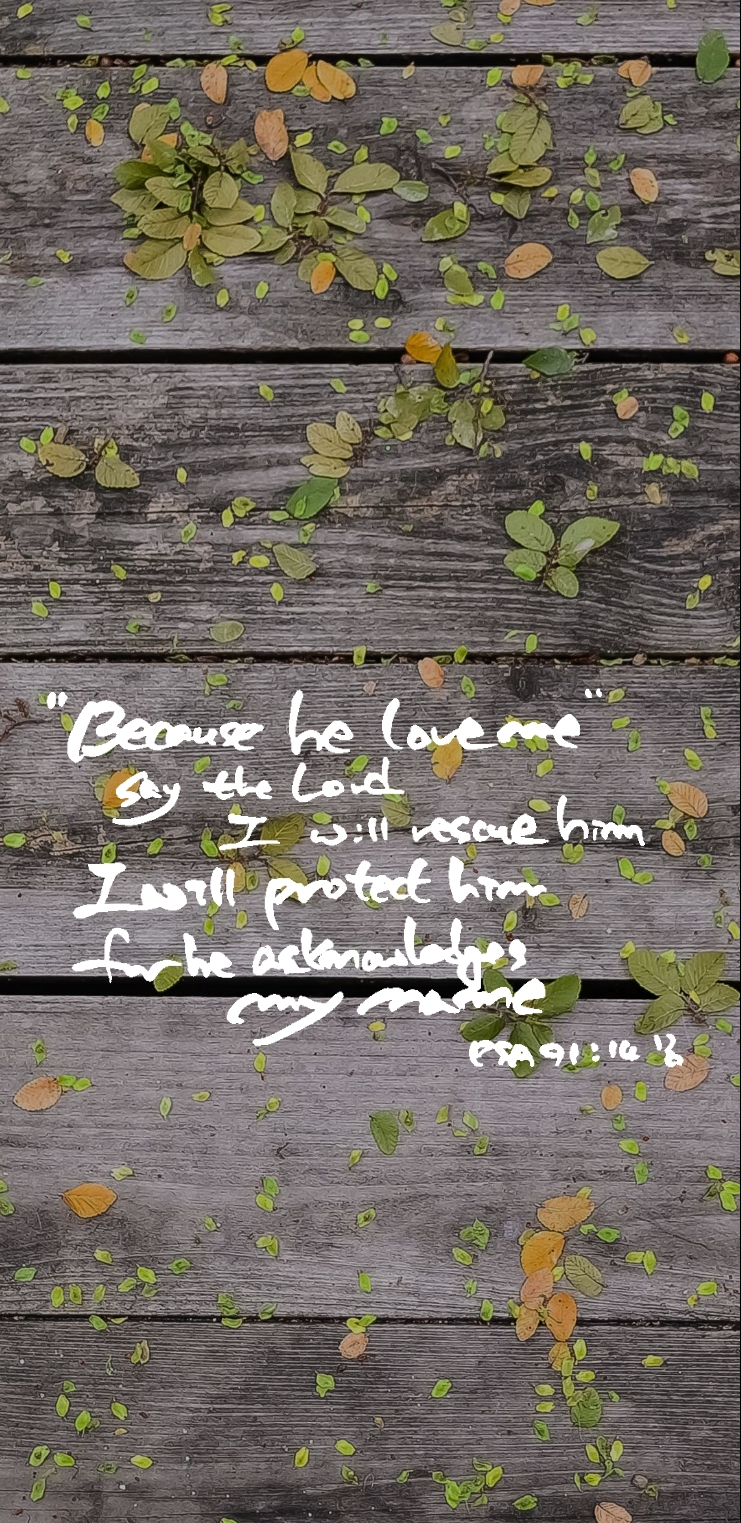 "Because he love me"
say the Lord
I will rescue him
I will protect him
for he acknowledges
my name
PSA 91:14